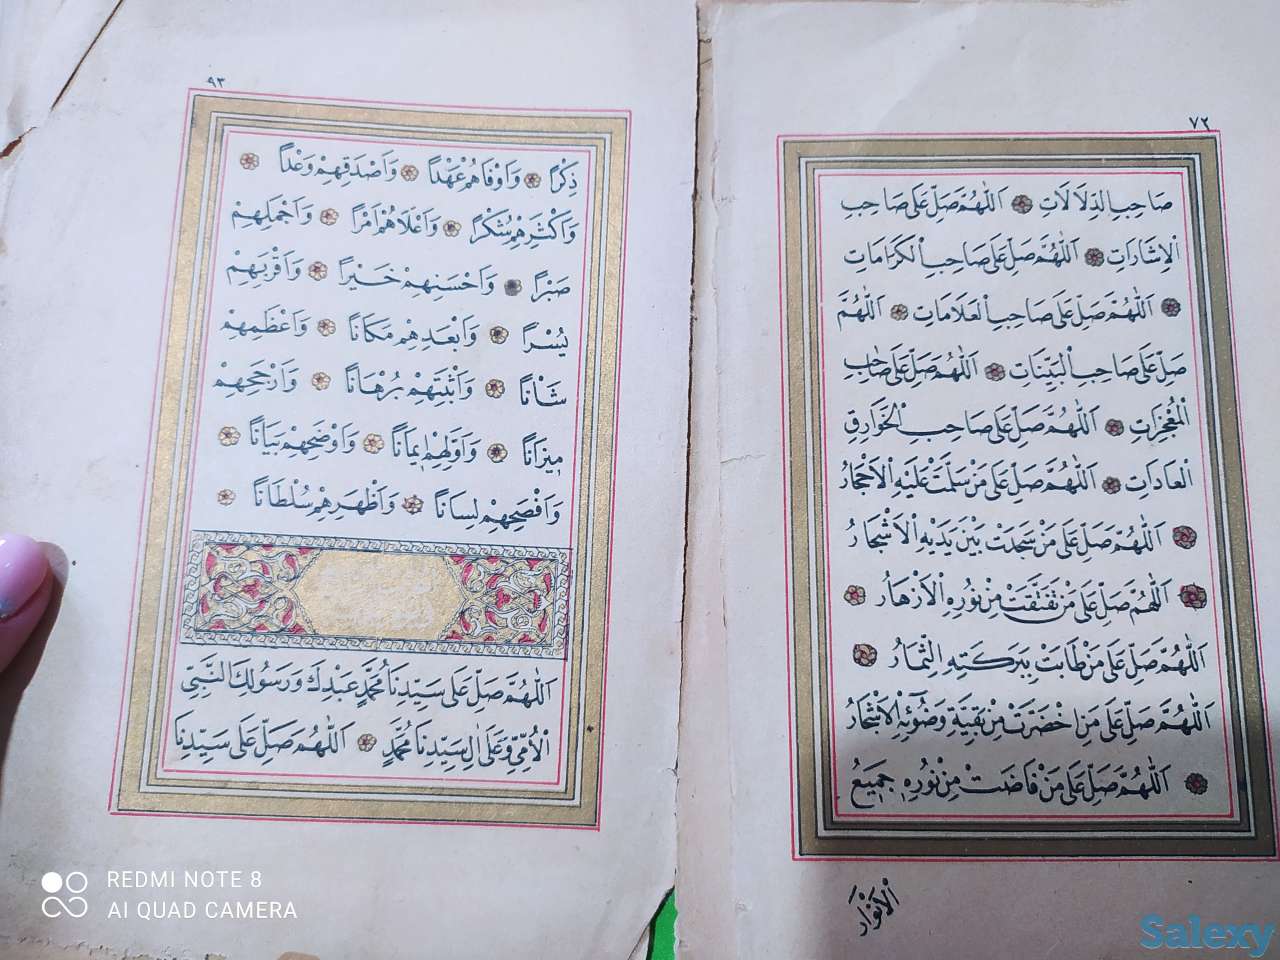 ٧٢
صَاحِبِ الدَّلَالَاتِ اَللّٰهُمَّ صَلِّ عَلٰى صَاحِبِ
الْاِشَارَاتِ اَللّٰهُمَّ صَلِّ عَلٰى صَاحِبِ الْكَرَامَاتِ
اَللّٰهُمَّ صَلِّ عَلٰى صَاحِبِ الْعَلَامَاتِ اَللّٰهُمَّ
صَلِّ عَلٰى صَاحِبِ الْبَيِّنَاتِ اَللّٰهُمَّ صَلِّ عَلٰى صَاحِبِ
الْمُعْجِزَاتِ اَللّٰهُمَّ صَلِّ عَلٰى صَاحِبِ الْخَوَارِقِ
الْعَادَاتِ اَللّٰهُمَّ صَلِّ عَلٰى مَنْ سَلَّمَتْ عَلَيْهِ الْاَحْجَارُ
اَللّٰهُمَّ صَلِّ عَلٰى مَنْ سَجَدَتْ بَيْنَ يَدَيْهِ الْاَشْجَارُ
اَللّٰهُمَّ صَلِّ عَلٰى مَنْ تَفَتَّقَتْ مِنْ نُورِهِ الْاَزْهَارُ
اَللّٰهُمَّ صَلِّ عَلٰى مَنْ طَابَتْ بِبَرَكَتِهِ الثِّمَارُ
اَللّٰهُمَّ صَلِّ عَلٰى مَنِ اخْضَرَّتْ مِنْ بَقِيَّةِ وَضُوئِهِ الْاَشْجَارُ
اَللّٰهُمَّ صَلِّ عَلٰى مَنْ فَاضَتْ مِنْ نُورِهِ جَمِيعُ
الْاَنْوَارِ
٩٣
ذِكْرًا وَاَوْفَاهُمْ عَهْدًا وَاَصْدَقِهِمْ وَعْدًا
وَاَكْثَرِهِمْ شُكْرًا وَاَعْلَاهُمْ اَمْرًا وَاَجْمَلِهِمْ
صَبْرًا وَاَحْسَنِهِمْ خَيْرًا وَاَقْرَبِهِمْ
يُسْرًا وَاَبْعَدِهِمْ مَكَانًا وَاَعْظَمِهِمْ
شَانًا وَاَثْبَتِهِمْ بُرْهَانًا وَاَرْجَحِهِمْ
مِيزَانًا وَاَوَّلِهِمْ اِيمَانًا وَاَوْضَحِهِمْ بَيَانًا
وَاَفْصَحِهِمْ لِسَانًا وَاَظْهَرِهِمْ سُلْطَانًا
اَللّٰهُمَّ صَلِّ عَلٰى سَيِّدِنَا مُحَمَّدٍ عَبْدِكَ وَرَسُولِكَ النَّبِيِّ
الْاُمِّيِّ وَعَلٰى اٰلِ سَيِّدِنَا مُحَمَّدٍ اَللّٰهُمَّ صَلِّ عَلٰى سَيِّدِنَا
REDMI NOTE 8
AI QUAD CAMERA
Salexy